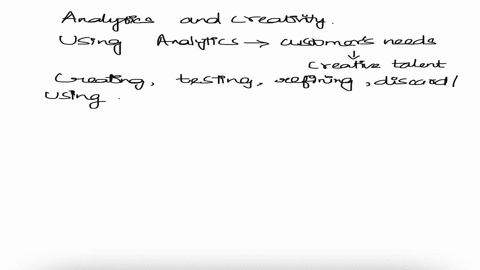 Analytics and creativity.
Using Analytics → customer's needs
↓
creative talent
creating, testing, refining, discard/
using.